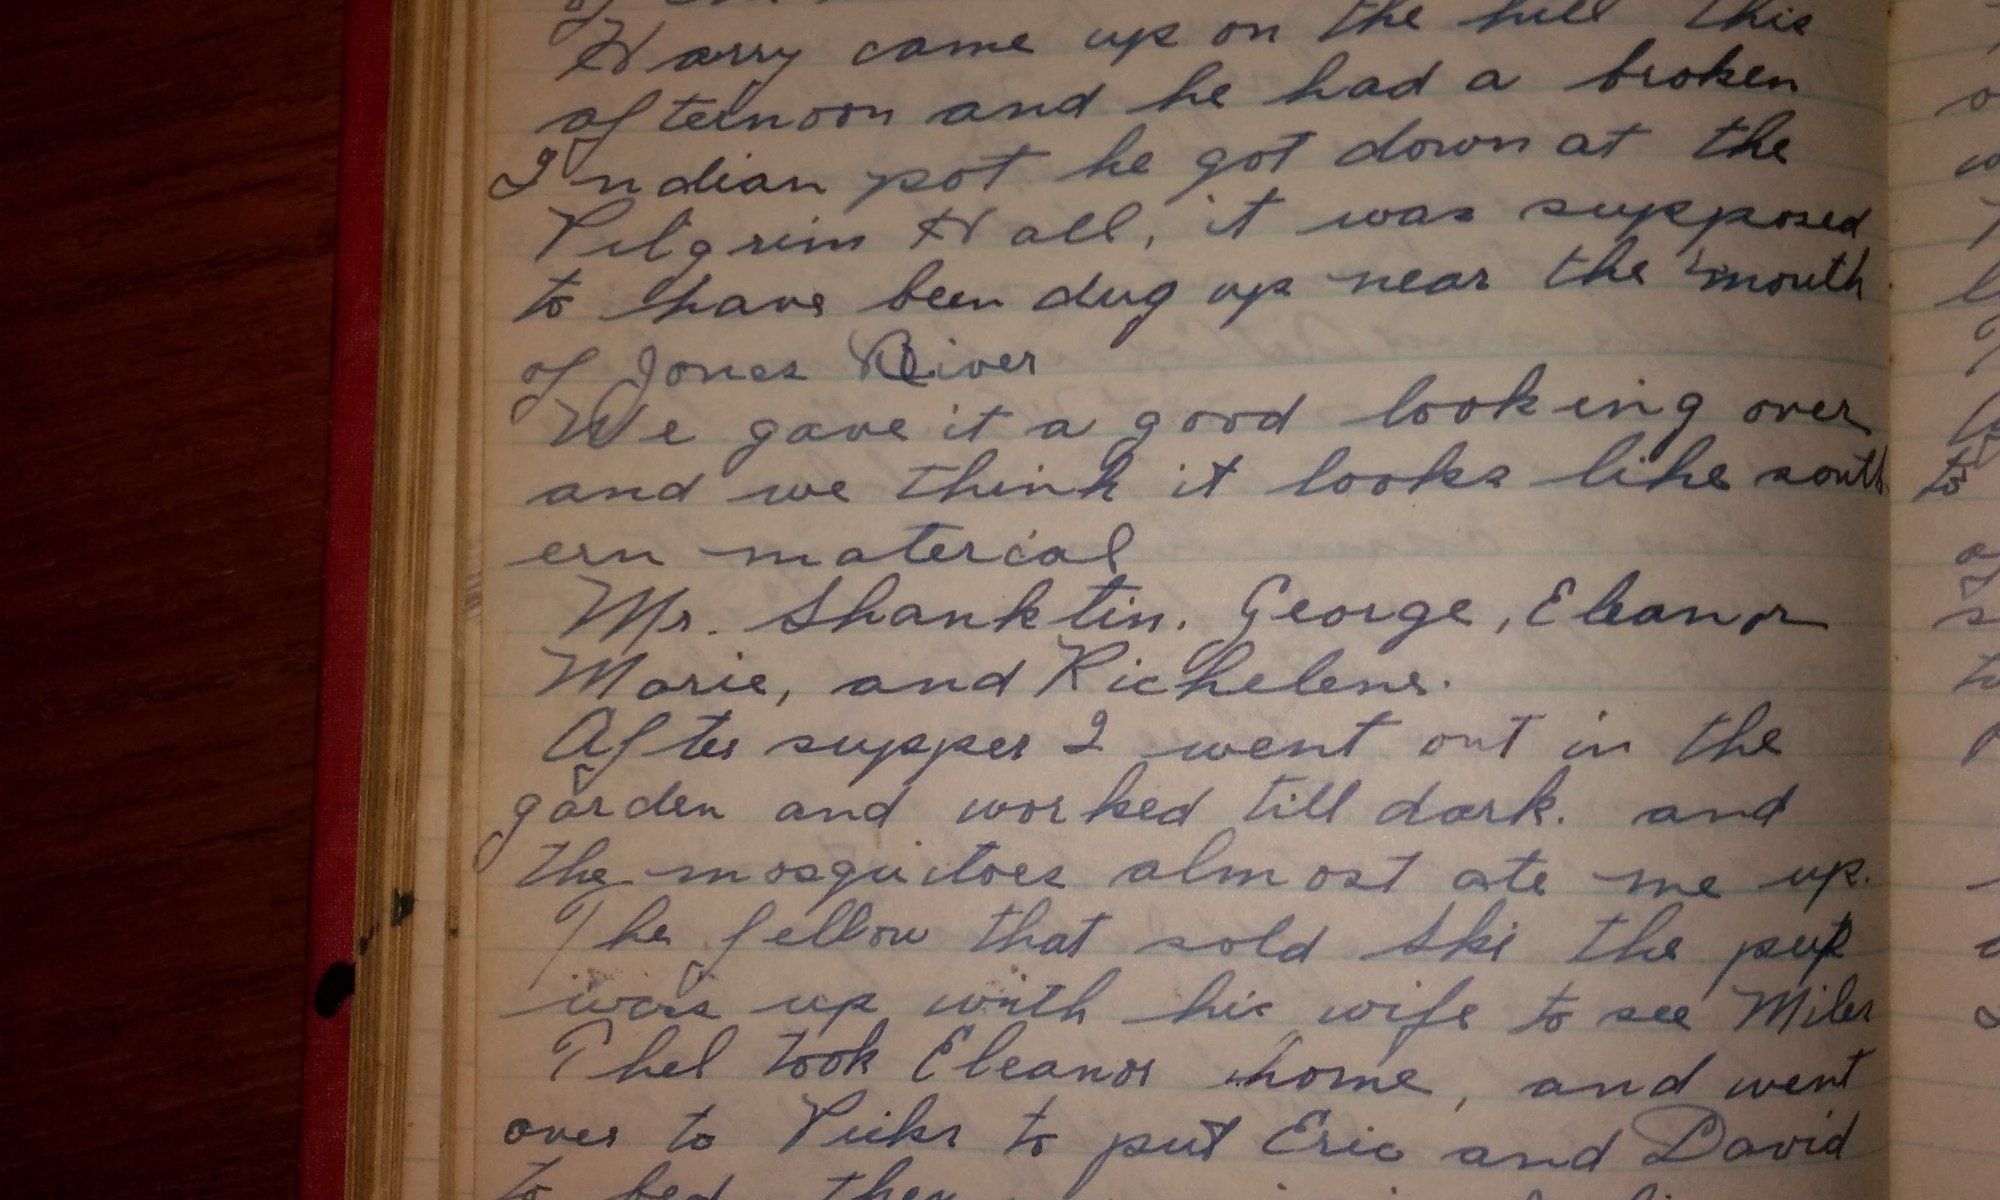 Harry came up on the hill this
afternoon and he had a broken
Indian pot he got down at the
Pilgrim Hall, it was supposed
to have been dug up near the mouth
of Jones River
We gave it a good looking over
and we think it looks like south
ern material
Mr. Shanktin. George, Eleanor
Marie, and Richelene.
After supper I went out in the
garden and worked till dark. and
the mosquitoes almost ate me up.
The fellow that sold Ski the pup
was up with his wife to see Miles
Thel took Eleanor home, and went
over to Picks to put Eric and David
to bed